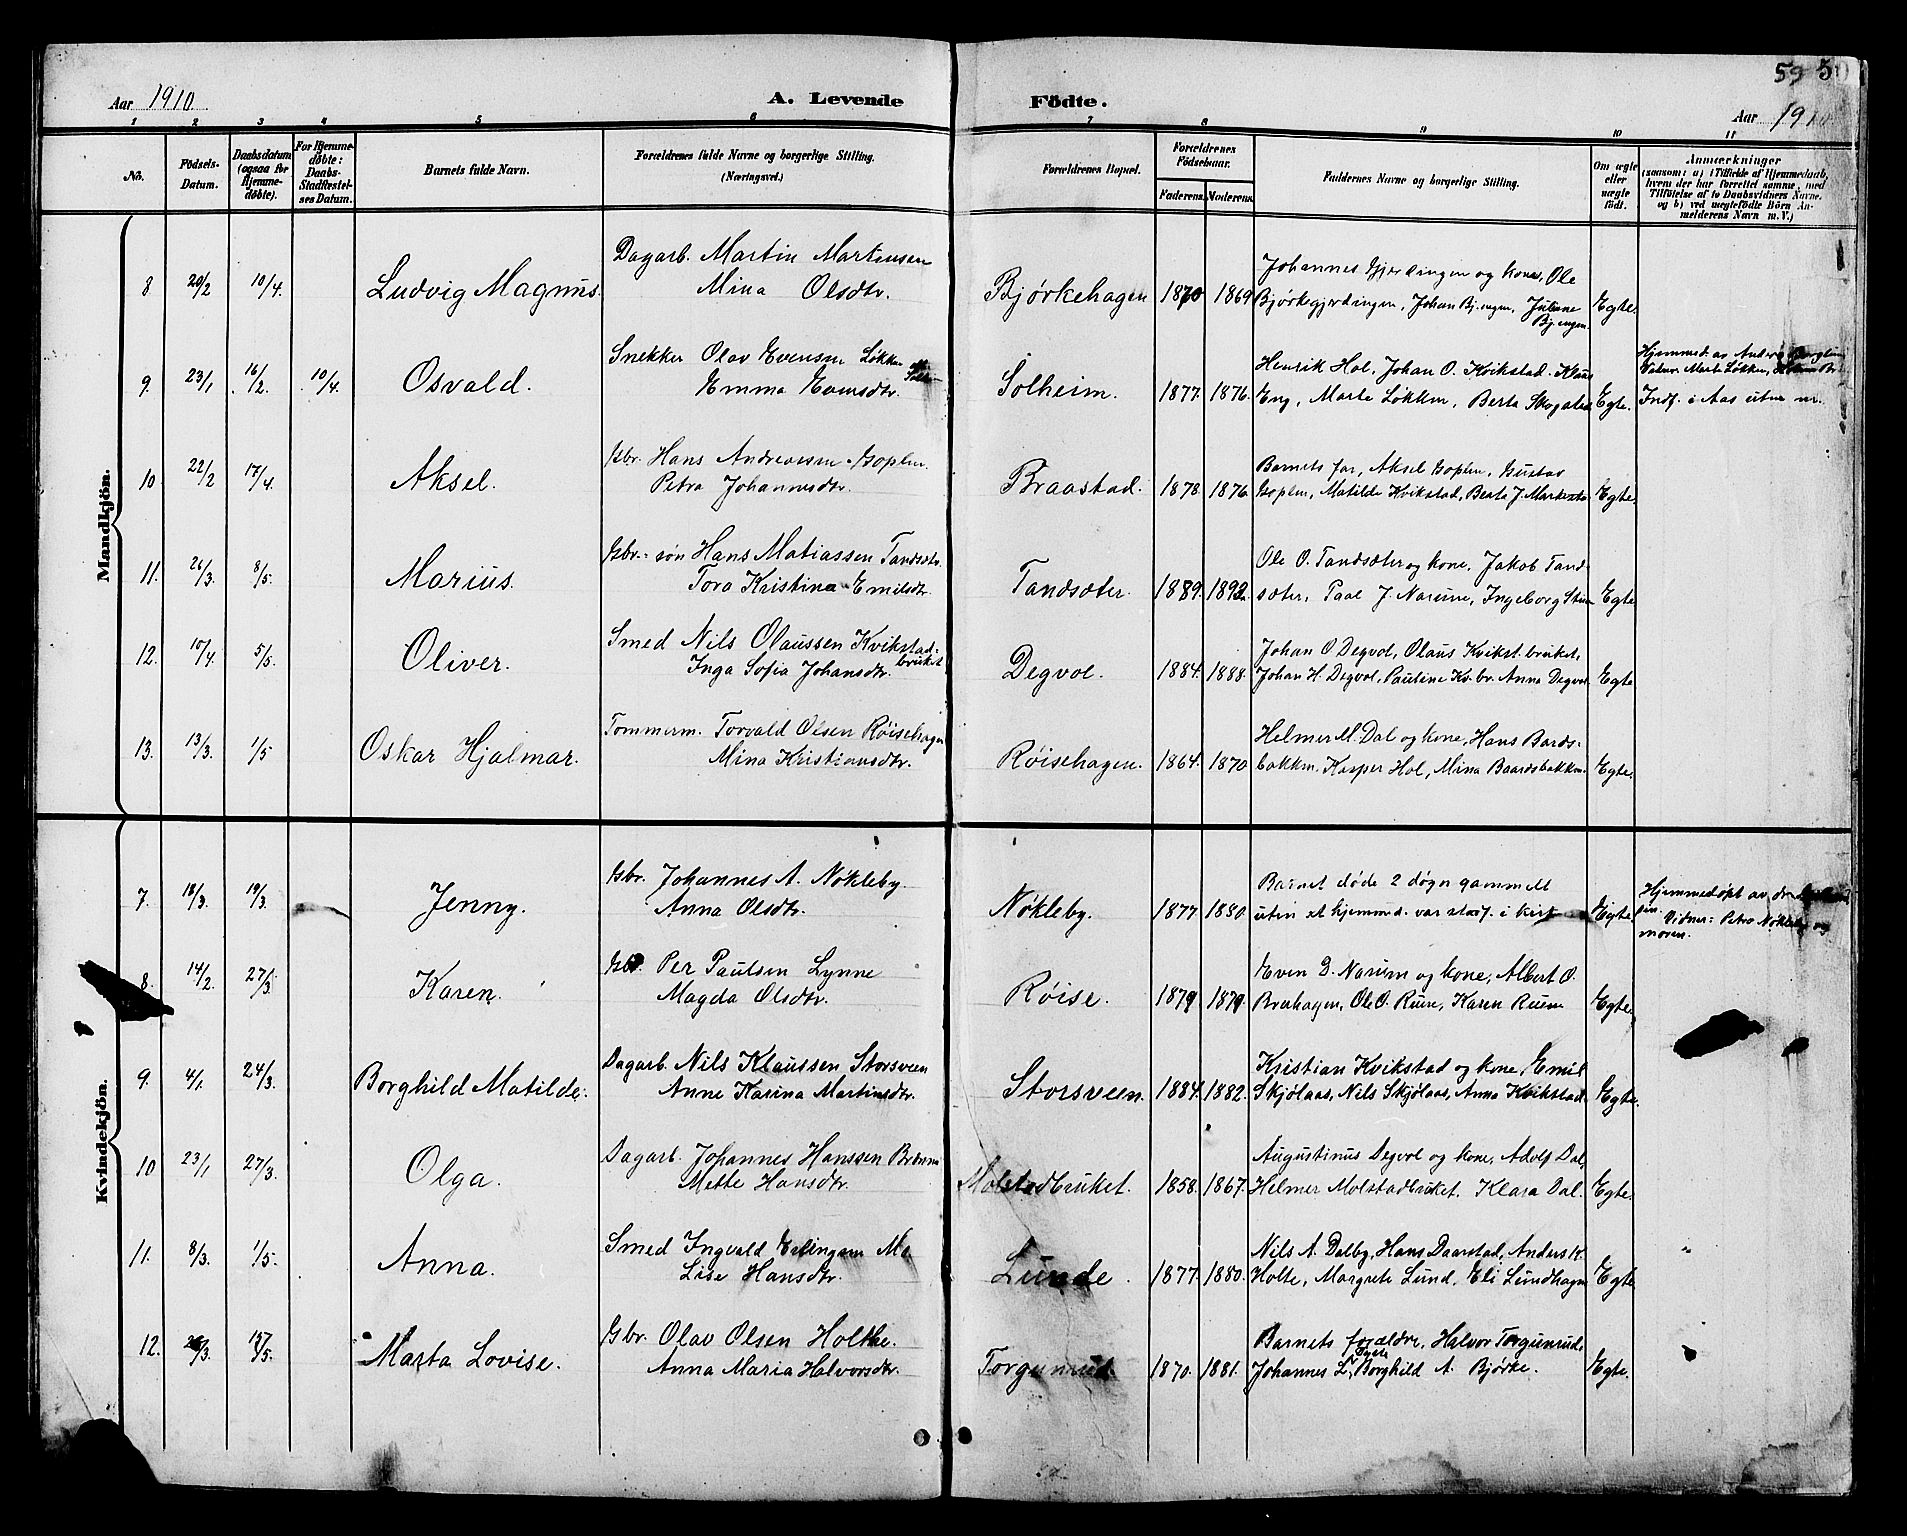 59 50
Aar 1910
A. Levende Födte.
Aar 1910
1 2 3 4 5 6 7 8 9 10 11
No.
Födsels-Datum.
Daabsdatum (ogsaa for Hjemmedöbte).
For Hjemmedöbte: Daabs-Stadfæstelses Datum.
Barnets fulde Navn.
Forældrenes fulde Navne og borgerlige Stilling. (Næringsvei.)
Forældrenes Bopæl.
Forældrenes Födselsaar.
Faderens. Moderens.
Faddernes Navne og borgerlige Stilling.
Om ægte eller uægte födt.
Anmærkninger
(saasom: a) i Tilfælde af Hjemmedaab,
hvem der har forrettet samme, med
Tilföielse af to Daabsvidners Navne,
og b) ved uægtefödte Börn An-
melderens Navn m. V.)
Mandkjön.
8 20/2 10/4. Ludvig Magnus. Dagarb. Martin Martinsen
Mina Olsdtr. Bjørkehagen 1870 1869
Johannes Gjerdingen og kone, Ole
Bjørkegjerdingen, Johan Bj.engen, Juline
Bj.engen. Egte.
9. 23/1 16/2. 10/4. Osvald. Snekker Olav Evensen Løkken
Emma Evensdtr. Solheim. 1877. 1876.
Henrik Hol, Johan O. Kvikstad. Klaus
Eng, Marte Løkken, Berta Skogstad Egte.
Hjemmed. av Anders
Vidner. Marte Løkken,
Indf. i Aas uten nr.
10 22/2 17/4. Aksel. Gbr. Hans Andreassen Goplen.
Petra Johannesdtr. Braastad. 1878. 1876.
Barnets far, Aksel Goplen, Gustav
Goplen, Matilde Kvikstad, Beata J. Markestad Egte.
11. 26/3. 8/5. Marius. Gbr.: søn Hans Matiassen Tandsæter
Tora Kristina Emilsdtr. Tandsæter. 1889. 1892.
Ole O. Tandsæter og kone, Jakob Tand-
sæter, Paal J. Narume, Ingeborg Egte
12. 10/4 5/5. Oliver. Smed Nils Olaussen Kvikstad-
bruket
Inga Sofia Johansdtr. Degvol. 1884. 1888.
Johan O Degvol, Olaus Kvikst.bruket,
Johan H. Degvol, Pauline Kv.br. Anna Degvol Egte
13. 13/3. 1/5 Oskar Hjalmar. Tommerm. Torvald Olsen Røisehagen
Mina Kristiansdtr. Røisehagen. 1864. 1870
Helmer M. Dal og kone, Hans Bards-
bakken. Kasper Hol, Mina Baardsbakken. Egte.
Kvindekjön.
7. 18/3. 19/3. Jenny. Gbr. Johannes A. Nøkleby.
Anna Olsdtr. Nøkleby. 1877. 1880.
Barnet døde 2 døgn gammelt
uten at hjemmed. var stadf. i kirk Egte
Hjemmedøpt av
Vidner: Petra Nøkleby og
moren.
8. 14/2. 27/3. Karen. Gbr Per Paulsen Lynne
Magda Olsdtr. Røise. 1879 1879.
Even D. Narum og kone, Albert O.
Bruhagen, Ole O. Ruen, Karen Ruen Egte.
9. 4/1. 24/3. Borghild Matilde. Dagarb. Nils Klaussen Storsveen
Anne Karina Martinsdtr. Storsveen. 1884. 1882.
Kristian Kvikstad og kone, Emil
Skjølaas, Nils Skjølaas, Anna Kvikstad. Egte.
10 23/1 27/3. Olga. Dagarb. Johannes Hanssen
Mette Hansdtr. Molstadbruket. 1858. 1867.
Augustinus Degvol og kone, Adolf Dal,
Helmer Molstadbruket. Klara Dal. Egte.
11. 8/3. 1/5. Anna. Smed Ingvald Erlingsen
Lise Hansdtr. Lunde. 1877. 1880.
Nils A. Dalby, Hans Daarstad, Anders K.
Holte, Margrete Lund, Eli Lundhagen Egte
12. /3. /5. Marta Lovise. Gbr. Olav Olsen Holthe.
Anna Maria Halvorsdtr. Torgunrud. 1870. 1881.
Barnets forældre, Halvor Torgunrud,
Johannes L. Borghild A. Bjørke. Egte.